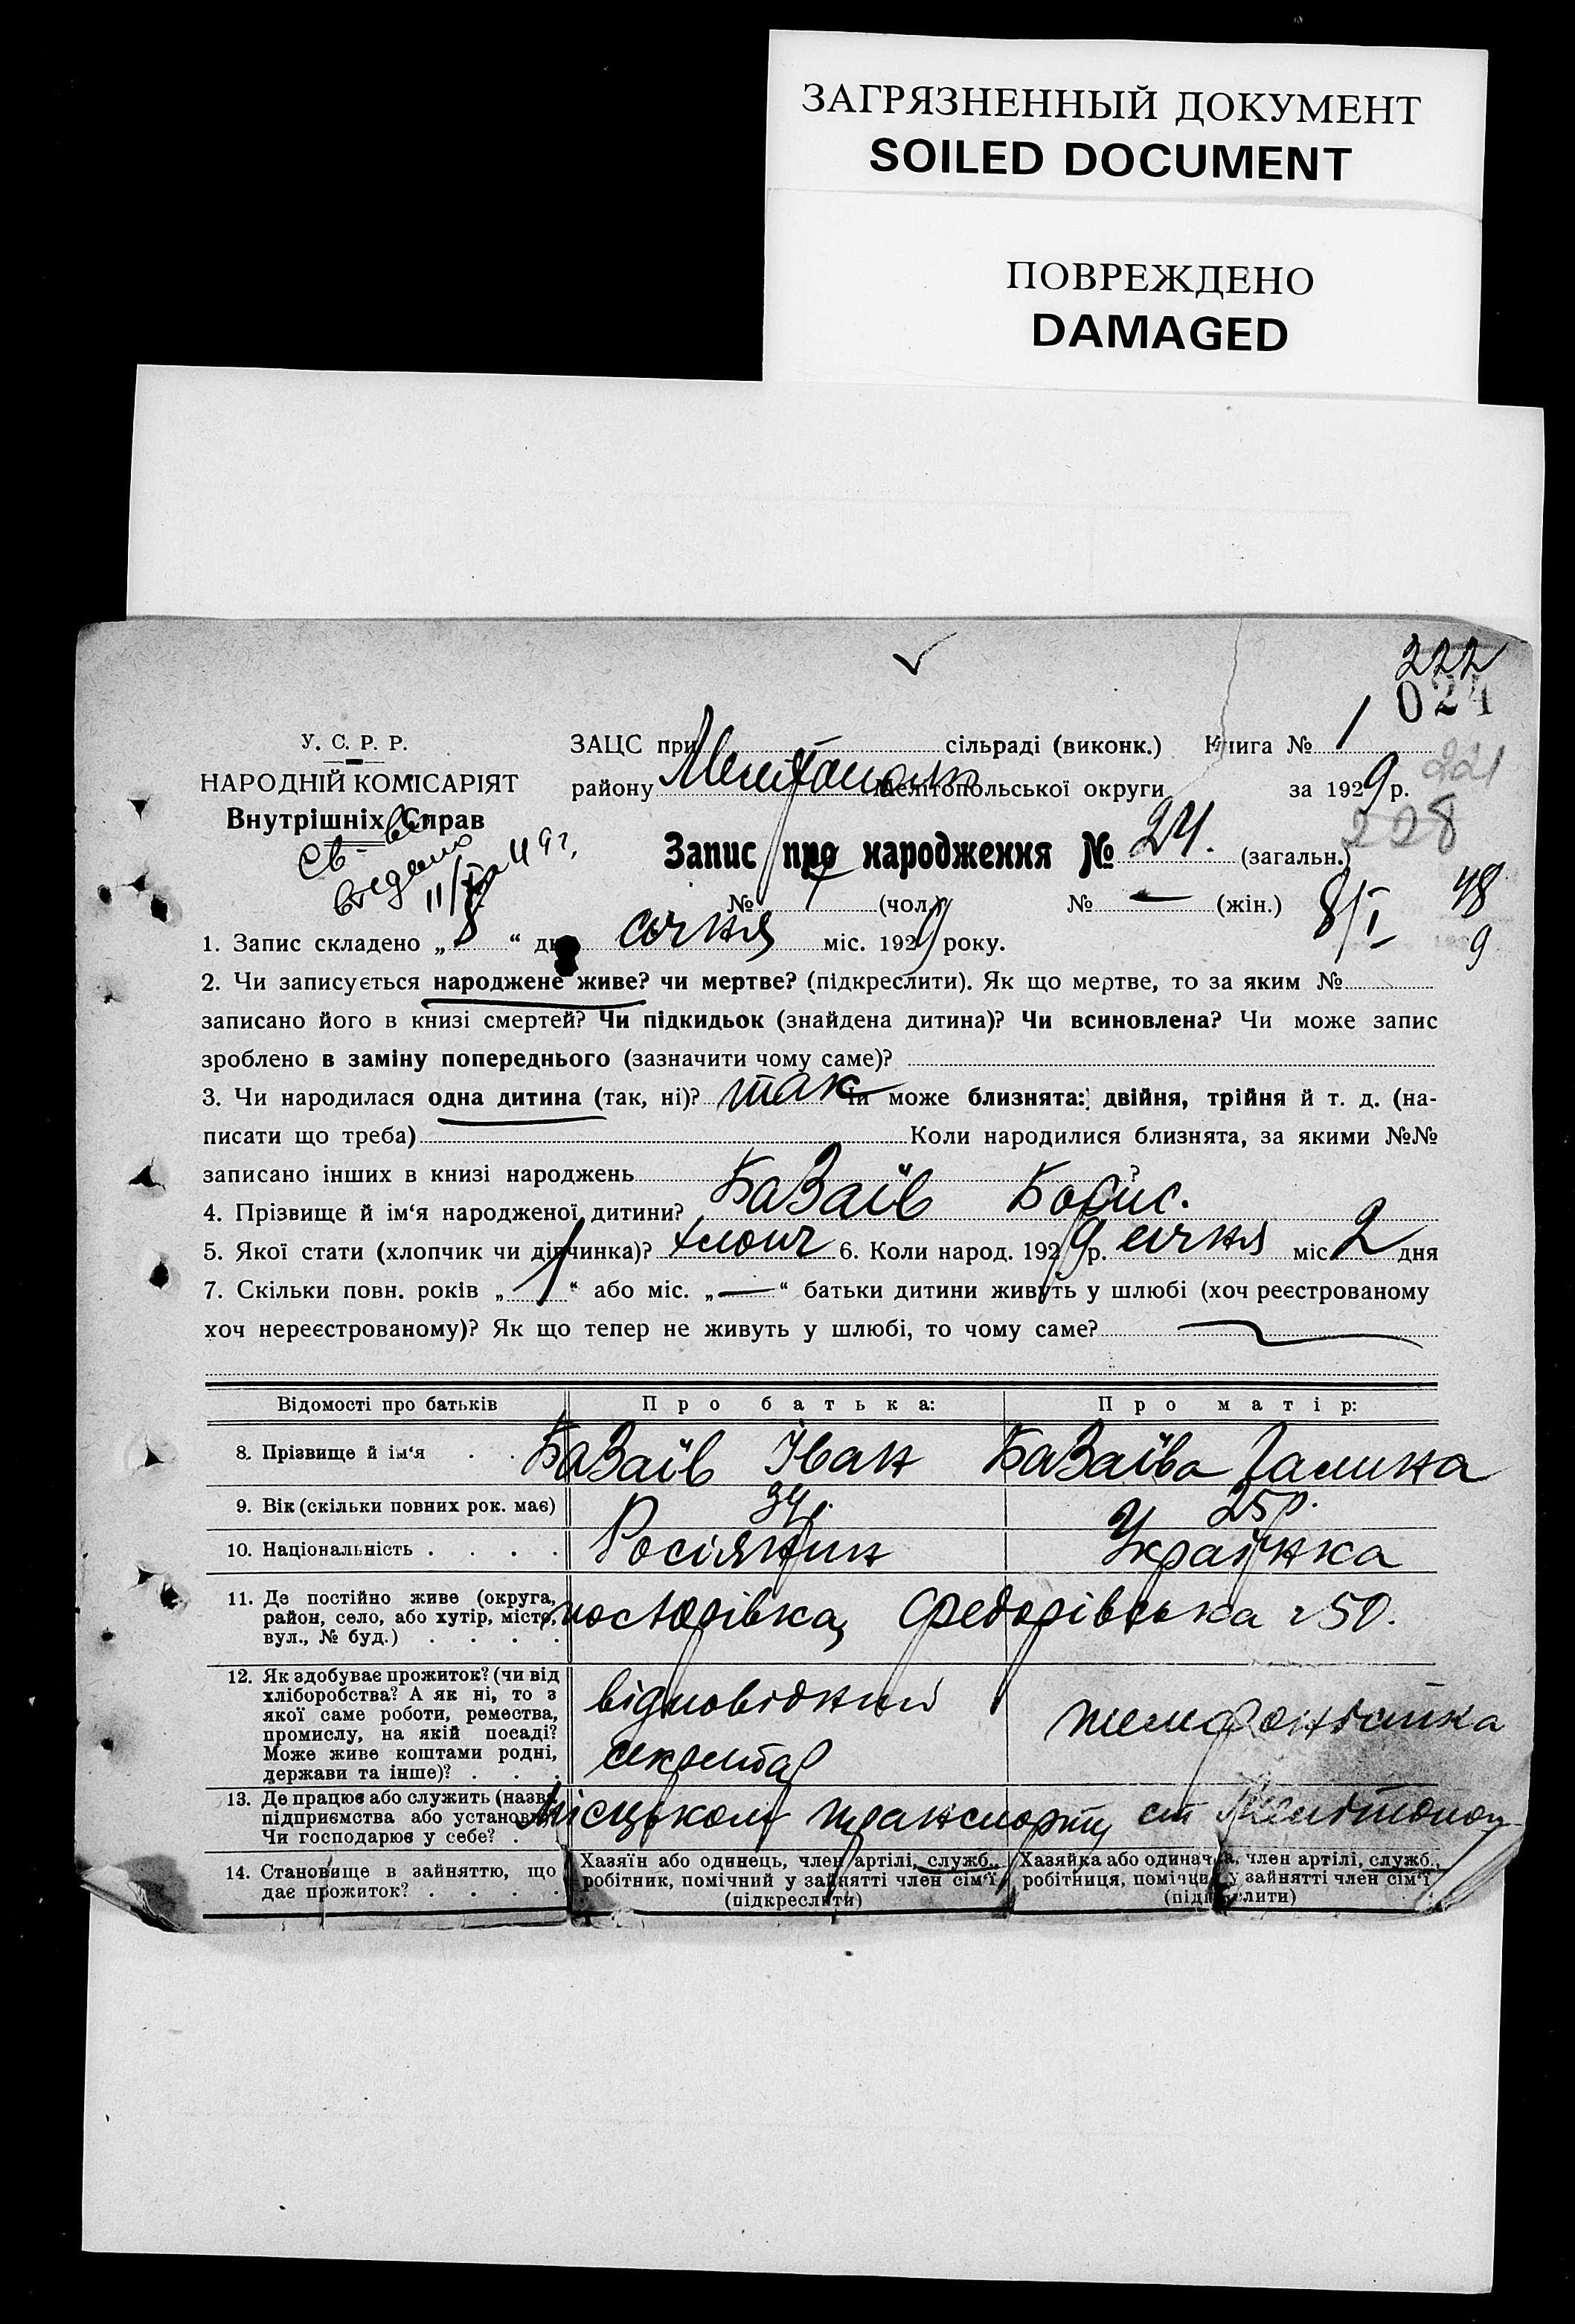 ЗАГРЯЗНЕННЫЙ ДОКУМЕНТ
SOILED DOCUMENT
ПОВРЕЖДЕНО
DAMAGED
222
024
У. С. Р. Р.
НАРОДНІЙ КОМІСАРІЯТ
Внутрішніх Справ
ЗАЦС при сільраді (виконк.) Книга № 1
221
району Мелітополь Мелітопольської округи за 1929 р.
228
Запис про народження № 24. (загальн.)
№ (чол.) № — (жін.)
8/I 48
9
1. Запис складено „8“ дня січня міс. 1929 року.
2. Чи записується народжене живе? чи мертве? (підкреслити). Як що мертве, то за яким №
записано його в книзі смертей? Чи підкидьок (знайдена дитина)? Чи всиновлена? Чи може запис
зроблено в заміну попереднього (зазначити чому саме)?
3. Чи народилася одна дитина (так, ні)? так Чи може близнята: двійня, трійня й т. д. (на-
писати що треба) Коли народилися близнята, за якими №№
записано інших в книзі народжень ?
4. Прізвище й ім‘я народженої дитини? Базаїв Борис.
5. Якої стати (хлопчик чи дівчинка)? хлопч 6. Коли народ. 1929 р. січня міс. 2 дня
7. Скільки повн. років „1“ або міс. „—“ батьки дитини живуть у шлюбі (хоч реєстрованому
хоч нереєстрованому)? Як що тепер не живуть у шлюбі, то чому саме?
Відомості про батьків Про батька: Про матір:
8. Прізвище й ім‘я . . Базаїв Іван Базаїва Галина
9. Вік (скільки повних рок. має) 25 р.
10. Національність . . . . Росіянин Українка
11. Де постійно живе (округа,
район, село, або хутір, місто,
вул., № буд.) . . . .
Федорівська 50.
12. Як здобуває прожиток? (чи від
хліборобства? А як ні, то з
якої саме роботи, ремества,
промислу, на якій посаді?
Може живе коштами родні,
держави та інше)? . . .
відповідний
секретар
телефоністка
13. Де працює або служить (назва
підприємства або установи?
Чи господарює у себе? .
Місцьком транспорту ст Мелітополь
14. Становище в зайняттю, що
дає прожиток? . . . .
Хазяїн або одинець, член артілі, служб.,
робітник, помічний у зайнятті член сім‘ї
(підкреслити)
Хазяйка або одиначка, член артілі, служб.,
робітниця, помічниця у зайнятті член сім‘ї
(підкреслити)